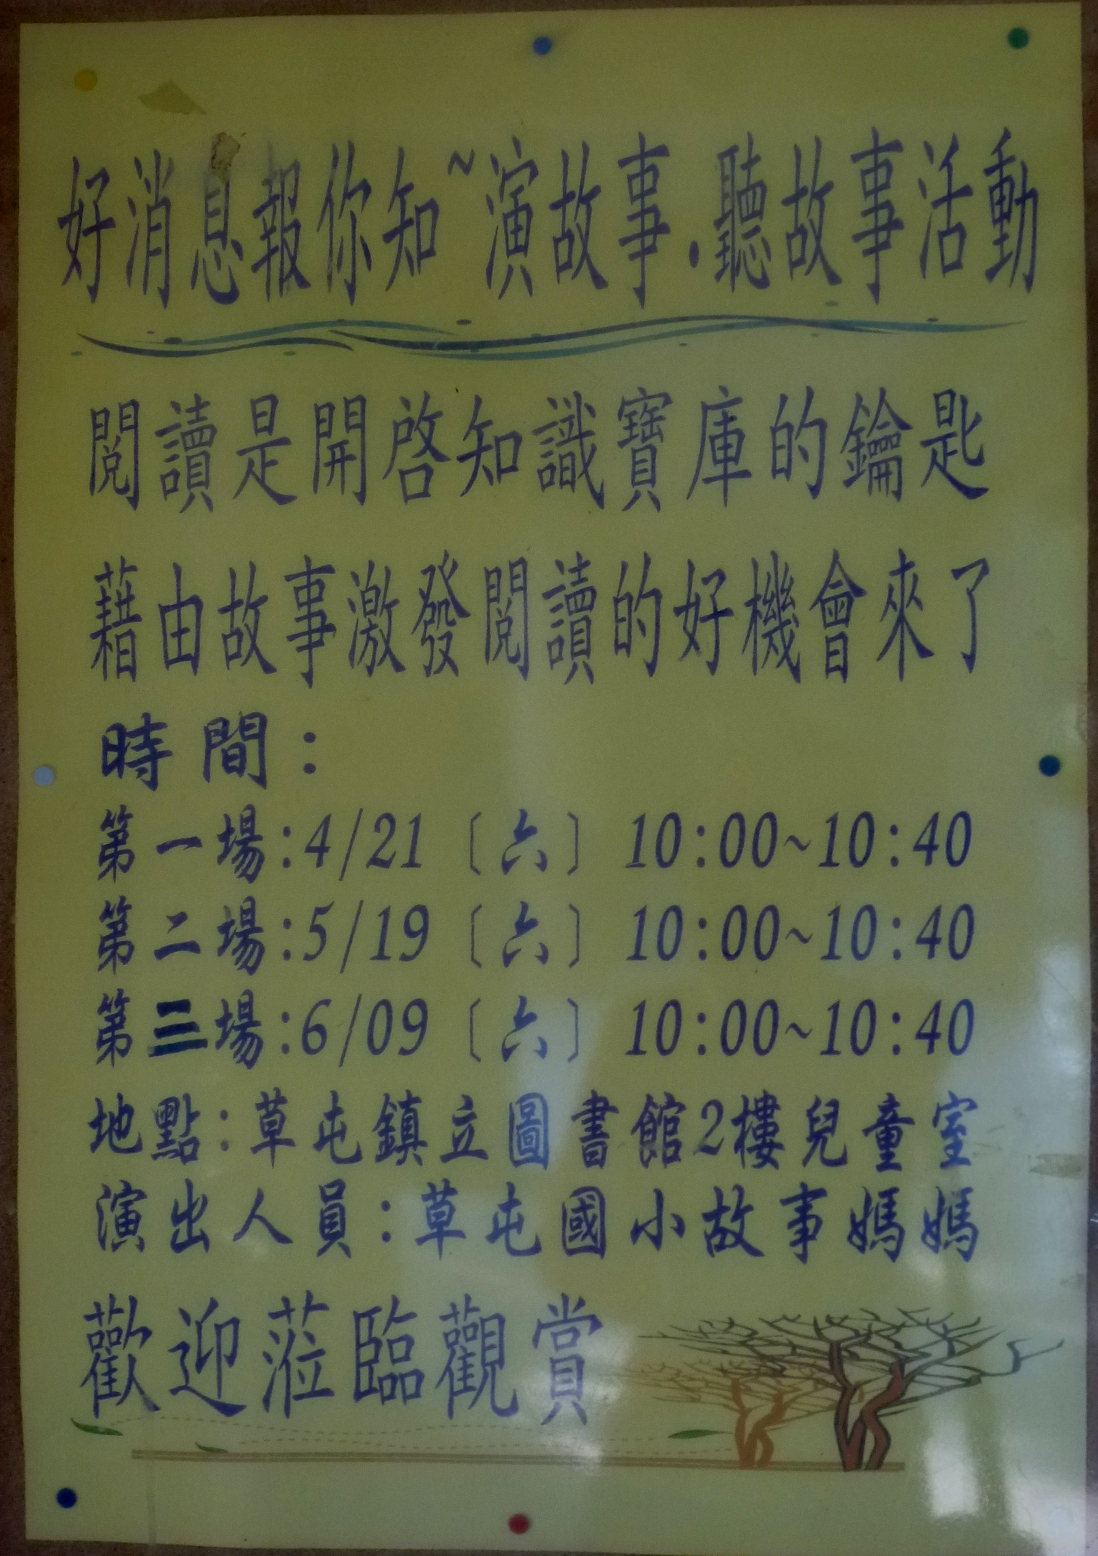 好消息報你知~演故事.聽故事活動
閱讀是開啓知識寶庫的鑰匙
藉由故事激發閱讀的好機會來了
時間：
第一場:4/21〔六〕10:00~10:40
第二場:5/19〔六〕10:00~10:40
第三場:6/09〔六〕10:00~10:40
地點:草屯鎮立圖書館2樓兒童室
演出人員:草屯國小故事媽媽
歡迎蒞臨觀賞